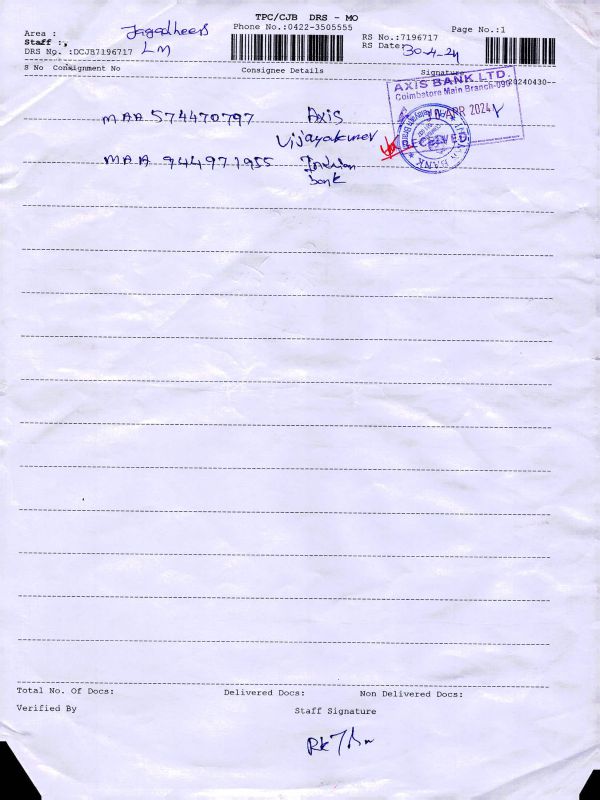 TPC/CJB DRS - MO
Phone No.:0422-3505555
Page No.:1
Area :
Staff :
LM
DRS No. :DCJB7196717
RS No.:7196717
RS Date: 30-4-24
S No Consignment No Consignee Details Signature
20240430-
AXIS BANK LTD.
Coimbatore Main Branch-090
APR 2024
RECEIVED
MAA 574470797 Axis
MAA 944971955
bank
Total No. Of Docs: Delivered Docs: Non Delivered Docs:
Verified By Staff Signature